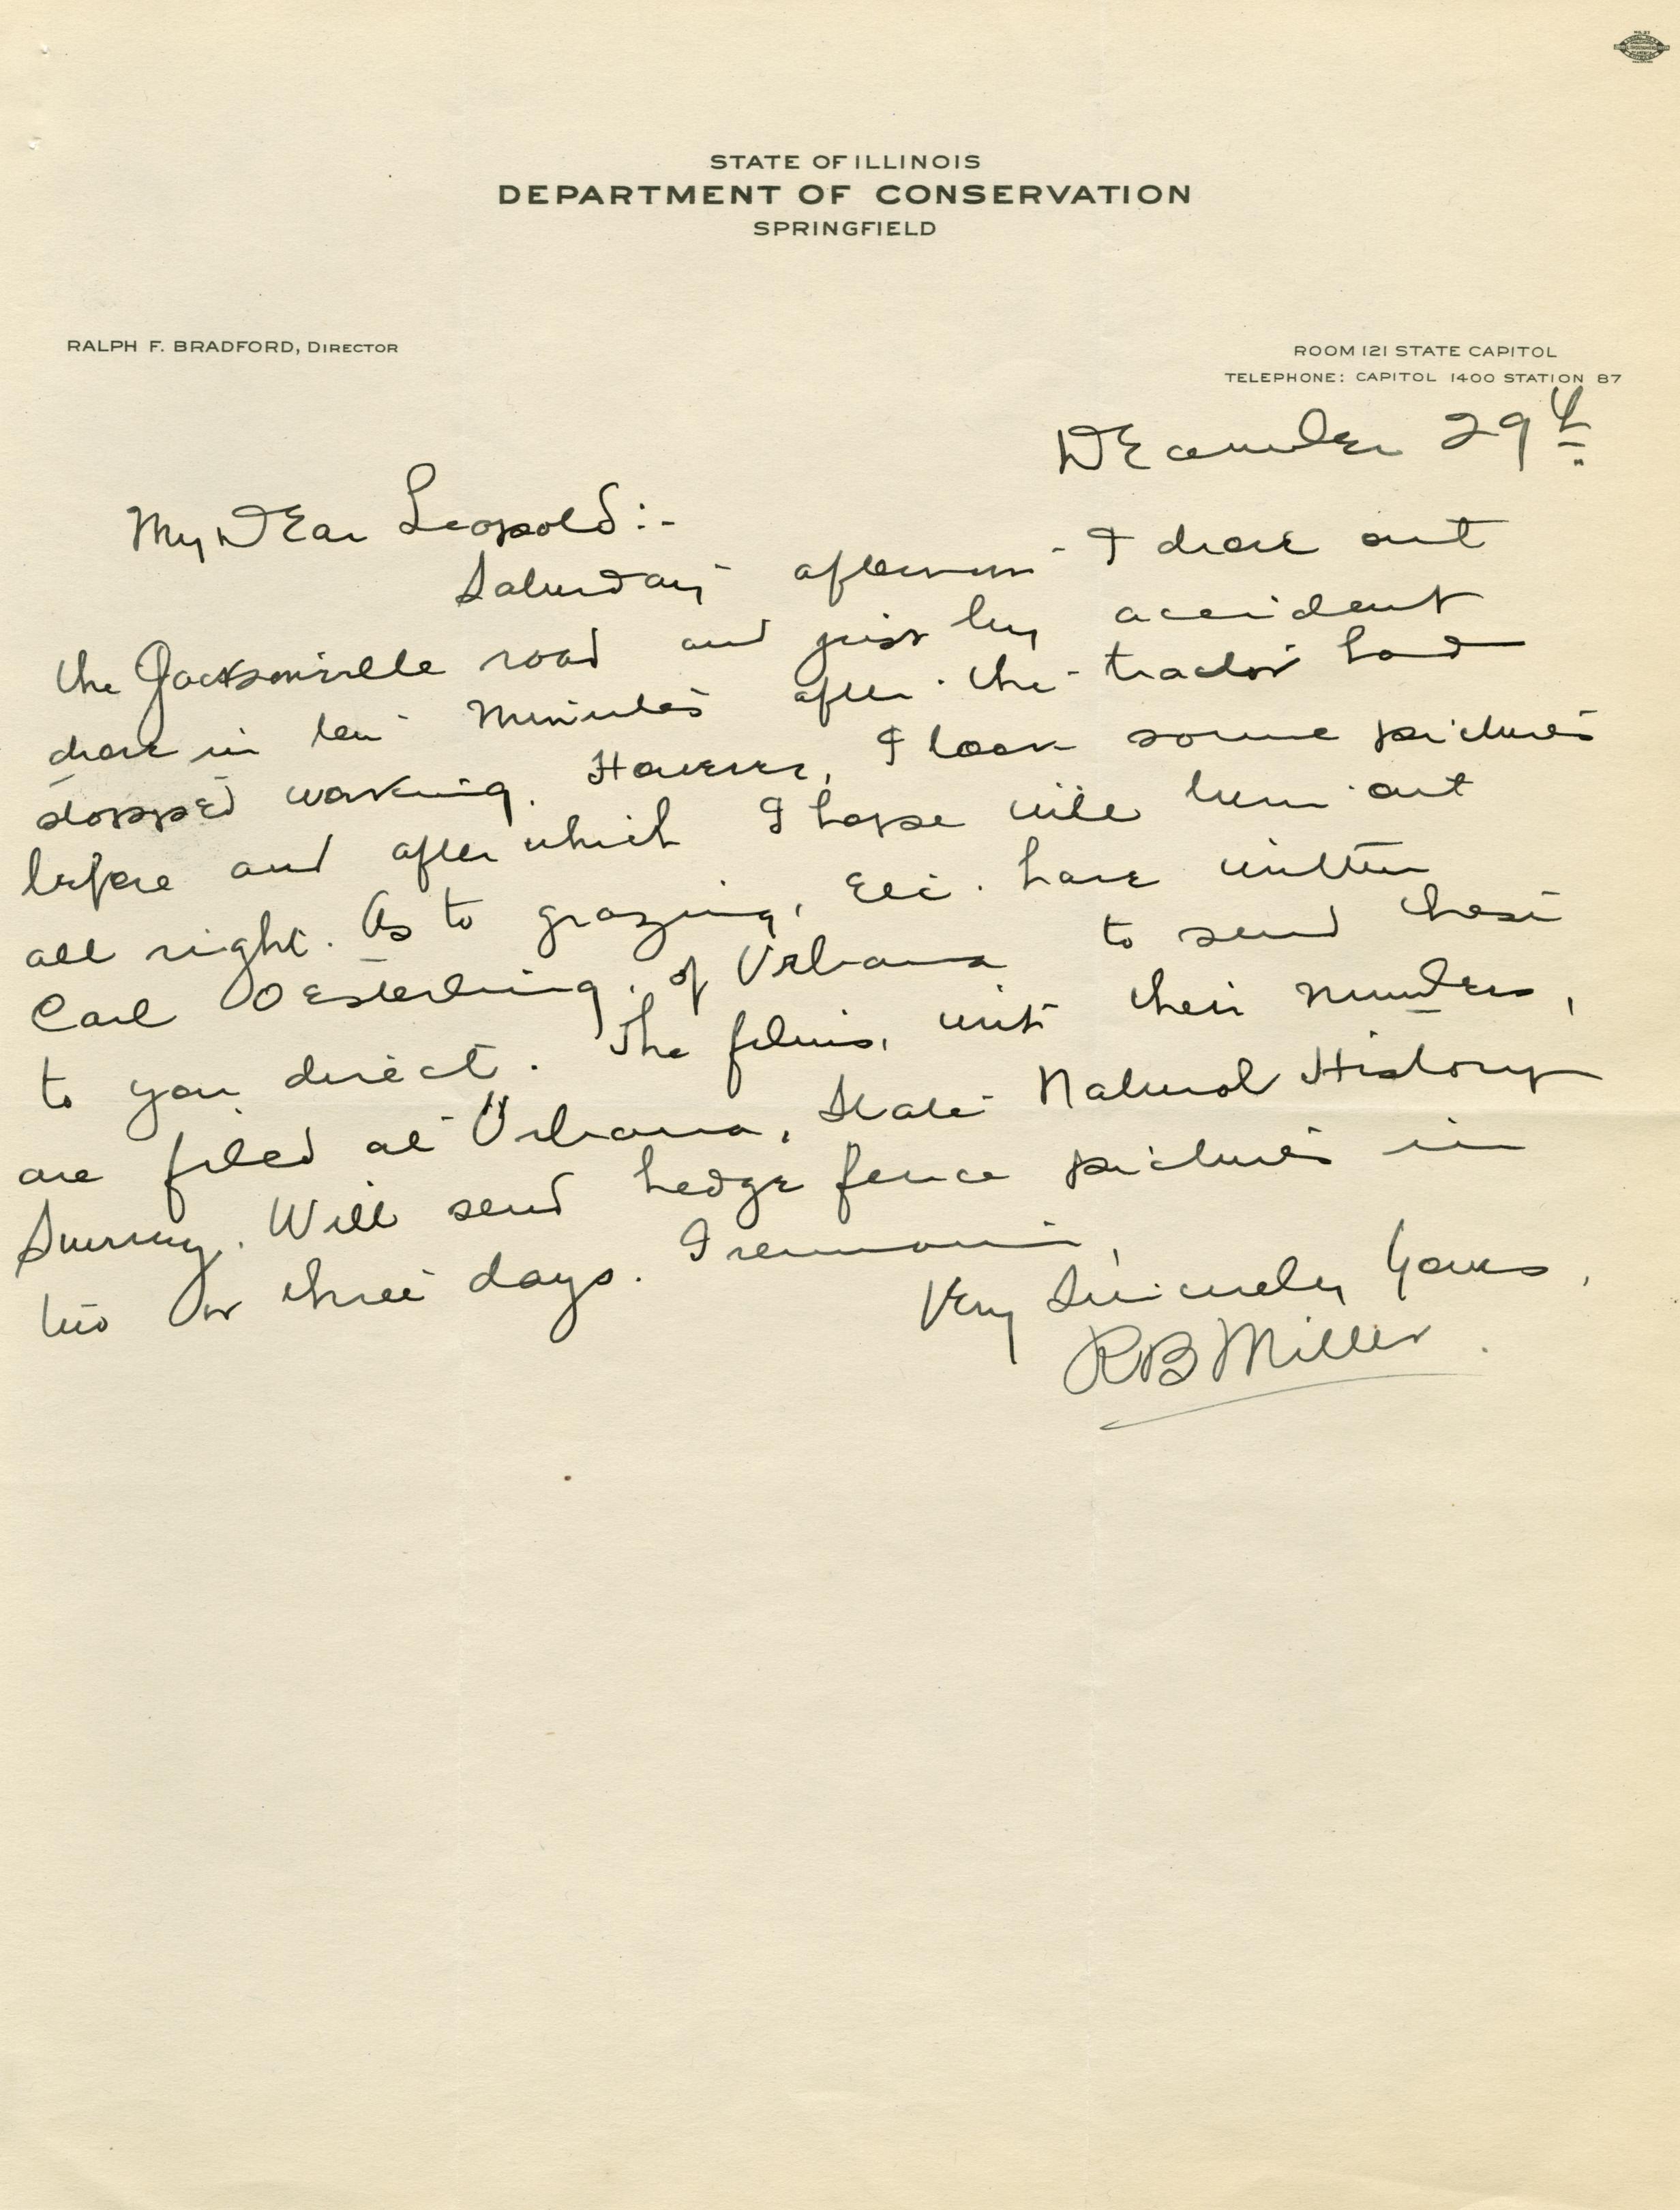 STATE OF ILLINOIS
DEPARTMENT OF CONSERVATION
SPRINGFIELD
RALPH F. BRADFORD, DIRECTOR
ROOM 121 STATE CAPITOL
TELEPHONE: CAPITOL 1400 STATION 87
December 29th
My Dear Leopold:-
Saturday afternoon I drove out
the Jacksonville road and just by accident
drove in ten minutes after the tractor had
stopped working. However, I took some pictures
before and after which I hope will turn out
all right. As to grazing, Etc. have written
Carl Oesterling, of Urbana to send these
to you direct. The films, with their numbers,
are filed at Urbana, State Natural History
Survey. Will send hedge fence pictures in
two or three days. I remain,
Very Sincerely Yours,
RB Miller.